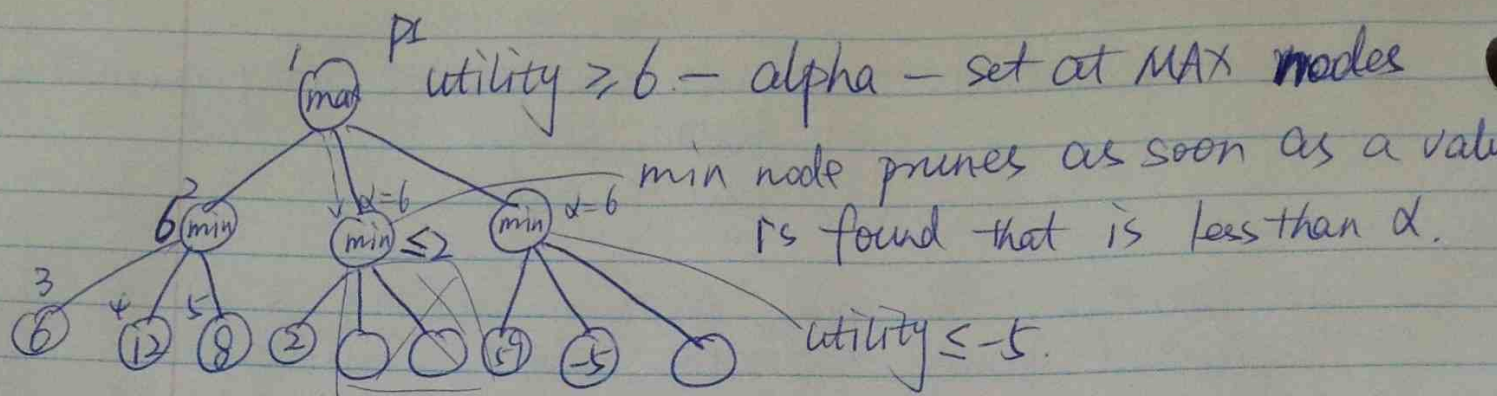 1 P1
max utility ≥ 6 - alpha - set at MAX nodes
min node prunes as soon as a valu
is found that is less than α.
2 α=6 α=6
6 min min ≤2 min
3 4 5
6 12 8 2 -5 utility ≤ -5.